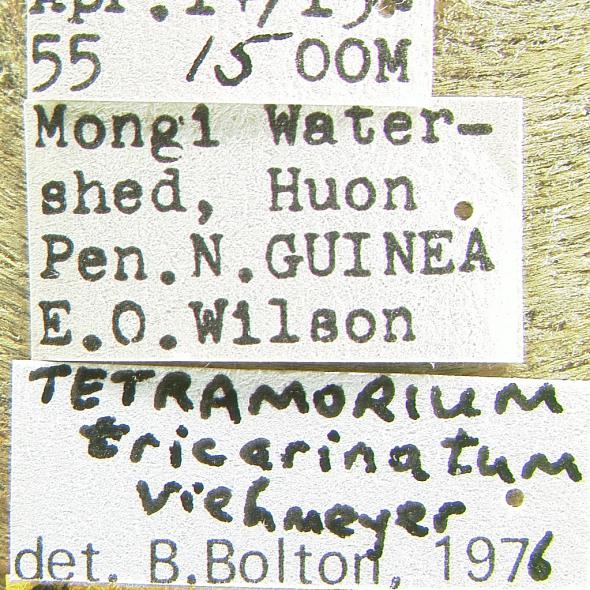 55 1500M
Mongi Water-
shed, Huon
Pen.N.GUINEA
E.O.Wilson
TETRAMORIUM
tricarinatum
Viehmeyer
det. B.Bolton, 1976